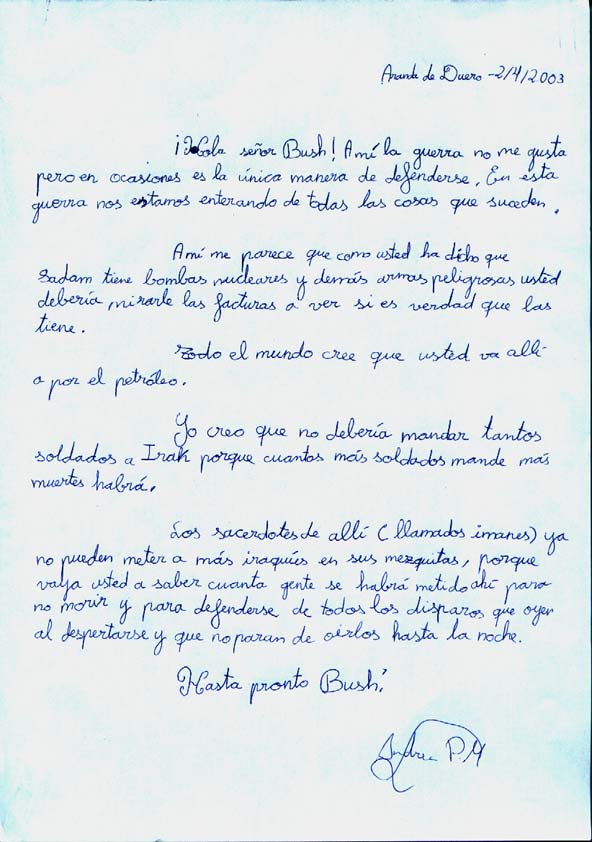 Aranda de Duero -2/4/2003
¡Hola señor Bush! Amí la guerra no me gusta
pero en ocasiones es la única manera de defenderse. En esta
guerra nos estamos enterando de todas las cosas que suceden.
Amí me parece que como usted ha dicho que
Sadam tiene bombas nucleares y demás armas peligrosas usted
debería, mirarle las facturas a ver si es verdad que las
tiene.
Todo el mundo cree que usted va allí
a por el petróleo.
Yo creo que no debería mandar tantos
soldados a Irak porque cuantos más soldados mande más
muertes habrá.
Los sacerdotes de allí (llamados imanes) ya
no pueden meter a más iraquíes en sus mezquitas, porque
vaya usted a saber cuanta gente se habrá metido ahí para
no morir y para defenderse de todos los disparos que oyen
al despertarse y que no paran de oírlos hasta la noche.
Hasta pronto Bush!
Andrea P.M